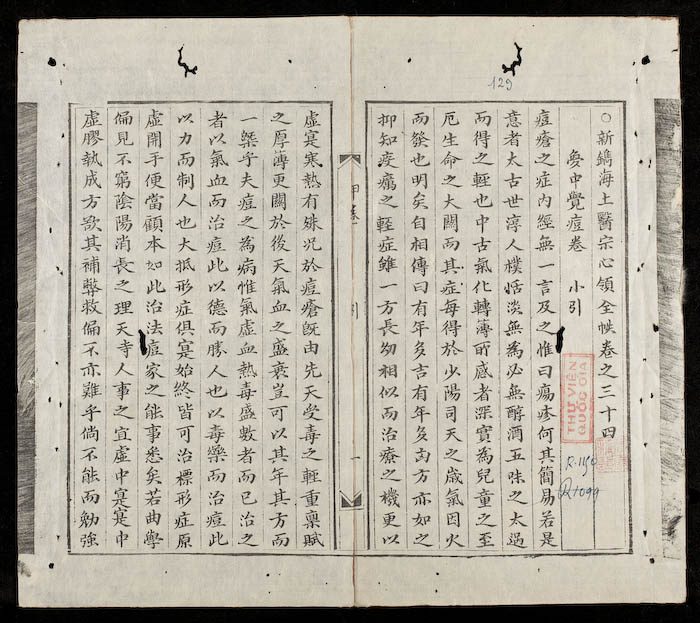 129
○新鐫海上醫宗心領全帙卷之三十四
夢中覺痘卷 小引
痘瘡之症內經無一言及之惟曰瘍疹何其簡易若是
意者太古世淳人樸恬淡無為必無醇酒五味之太過
而得之輕也中古氣化轉薄所感者深實為兒童之至
厄生命之大關而其症每得於少陽司天之歲氣因火
而發也明矣自相傳曰有年多吉有年多凶方亦如之
抑知疫癘之輕症雖一方長幼相似而治療之機更以
虛寔寒熱有殊況於痘瘡既由先天受毒之輕重稟賦
之厚薄更關於後天氣血之盛衰豈可以其年其方而
一槩乎夫痘之為病惟氣虛血熱毒盛數者而已治之
者以氣血而治痘此以德而勝人也以毒藥而治痘此
以力而制人也大抵形症俱寔始終皆可治標形症原
虛開手便當顧本如此治法痘家之能事悉矣若曲學
偏見不窮陰陽消長之理天寺人事之宜虛中寔寔中
虛膠執成方欲其補弊救偏不亦難乎倘不能而勉強
引
一
THƯ VIỆN
QUỐC GIA
R.1150
R1099